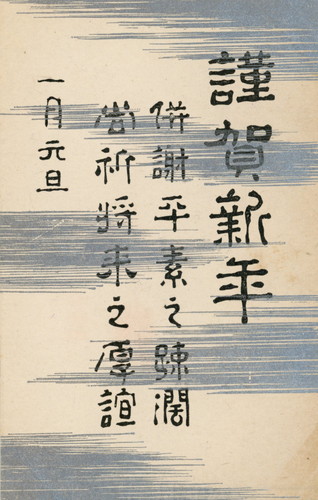 謹賀新年
併謝平素之疎濶
尚祈将来之厚誼
一月元旦